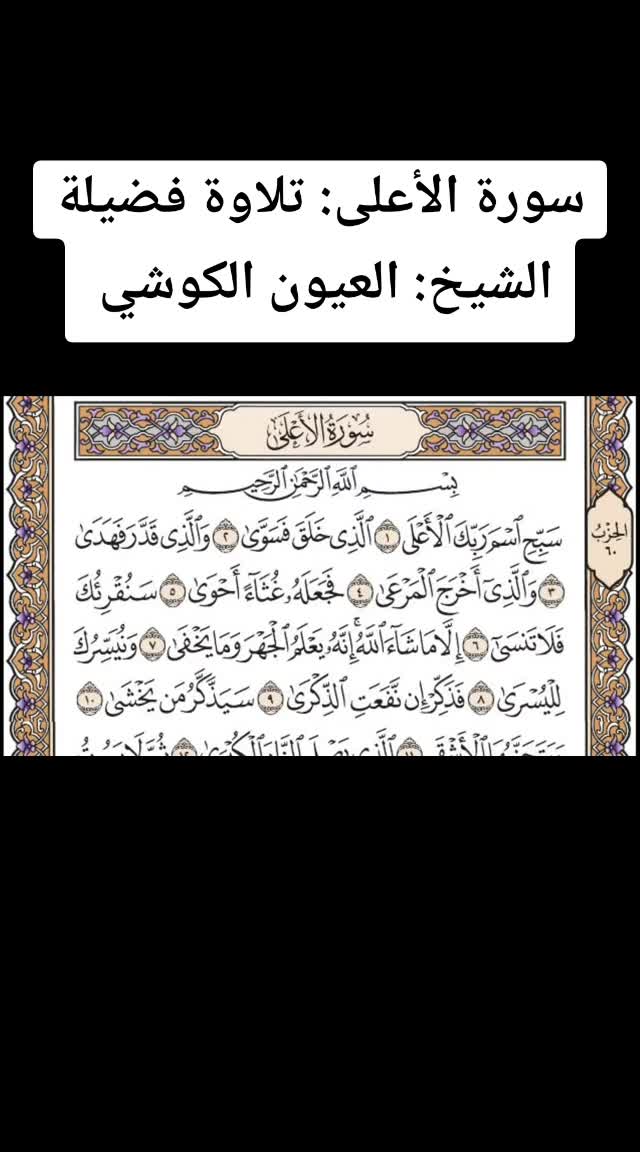 سورة الأعلى: تلاوة فضيلة
الشيخ: العيون الكوشي
سُورَةُ الأَعْلَىٰ
بِسْمِ ٱللَّهِ ٱلرَّحْمَٰنِ ٱلرَّحِيمِ
سَبِّحِ ٱسْمَ رَبِّكَ ٱلْأَعْلَى ١ ٱلَّذِى خَلَقَ فَسَوَّىٰ ٢ وَٱلَّذِى قَدَّرَ فَهَدَىٰ
ٱلحِزْبُ
٦٠
٣ وَٱلَّذِىٓ أَخْرَجَ ٱلْمَرْعَىٰ ٤ فَجَعَلَهُۥ غُثَآءً أَحْوَىٰ ٥ سَنُقْرِئُكَ
فَلَا تَنسَىٰٓ ٦ إِلَّا مَا شَآءَ ٱللَّهُ ۚ إِنَّهُۥ يَعْلَمُ ٱلْجَهْرَ وَمَا يَخْفَىٰ ٧ وَنُيَسِّرُكَ
لِلْيُسْرَىٰ ٨ فَذَكِّرْ إِن نَّفَعَتِ ٱلذِّكْرَىٰ ٩ سَيَذَّكَّرُ مَن يَخْشَىٰ ١٠